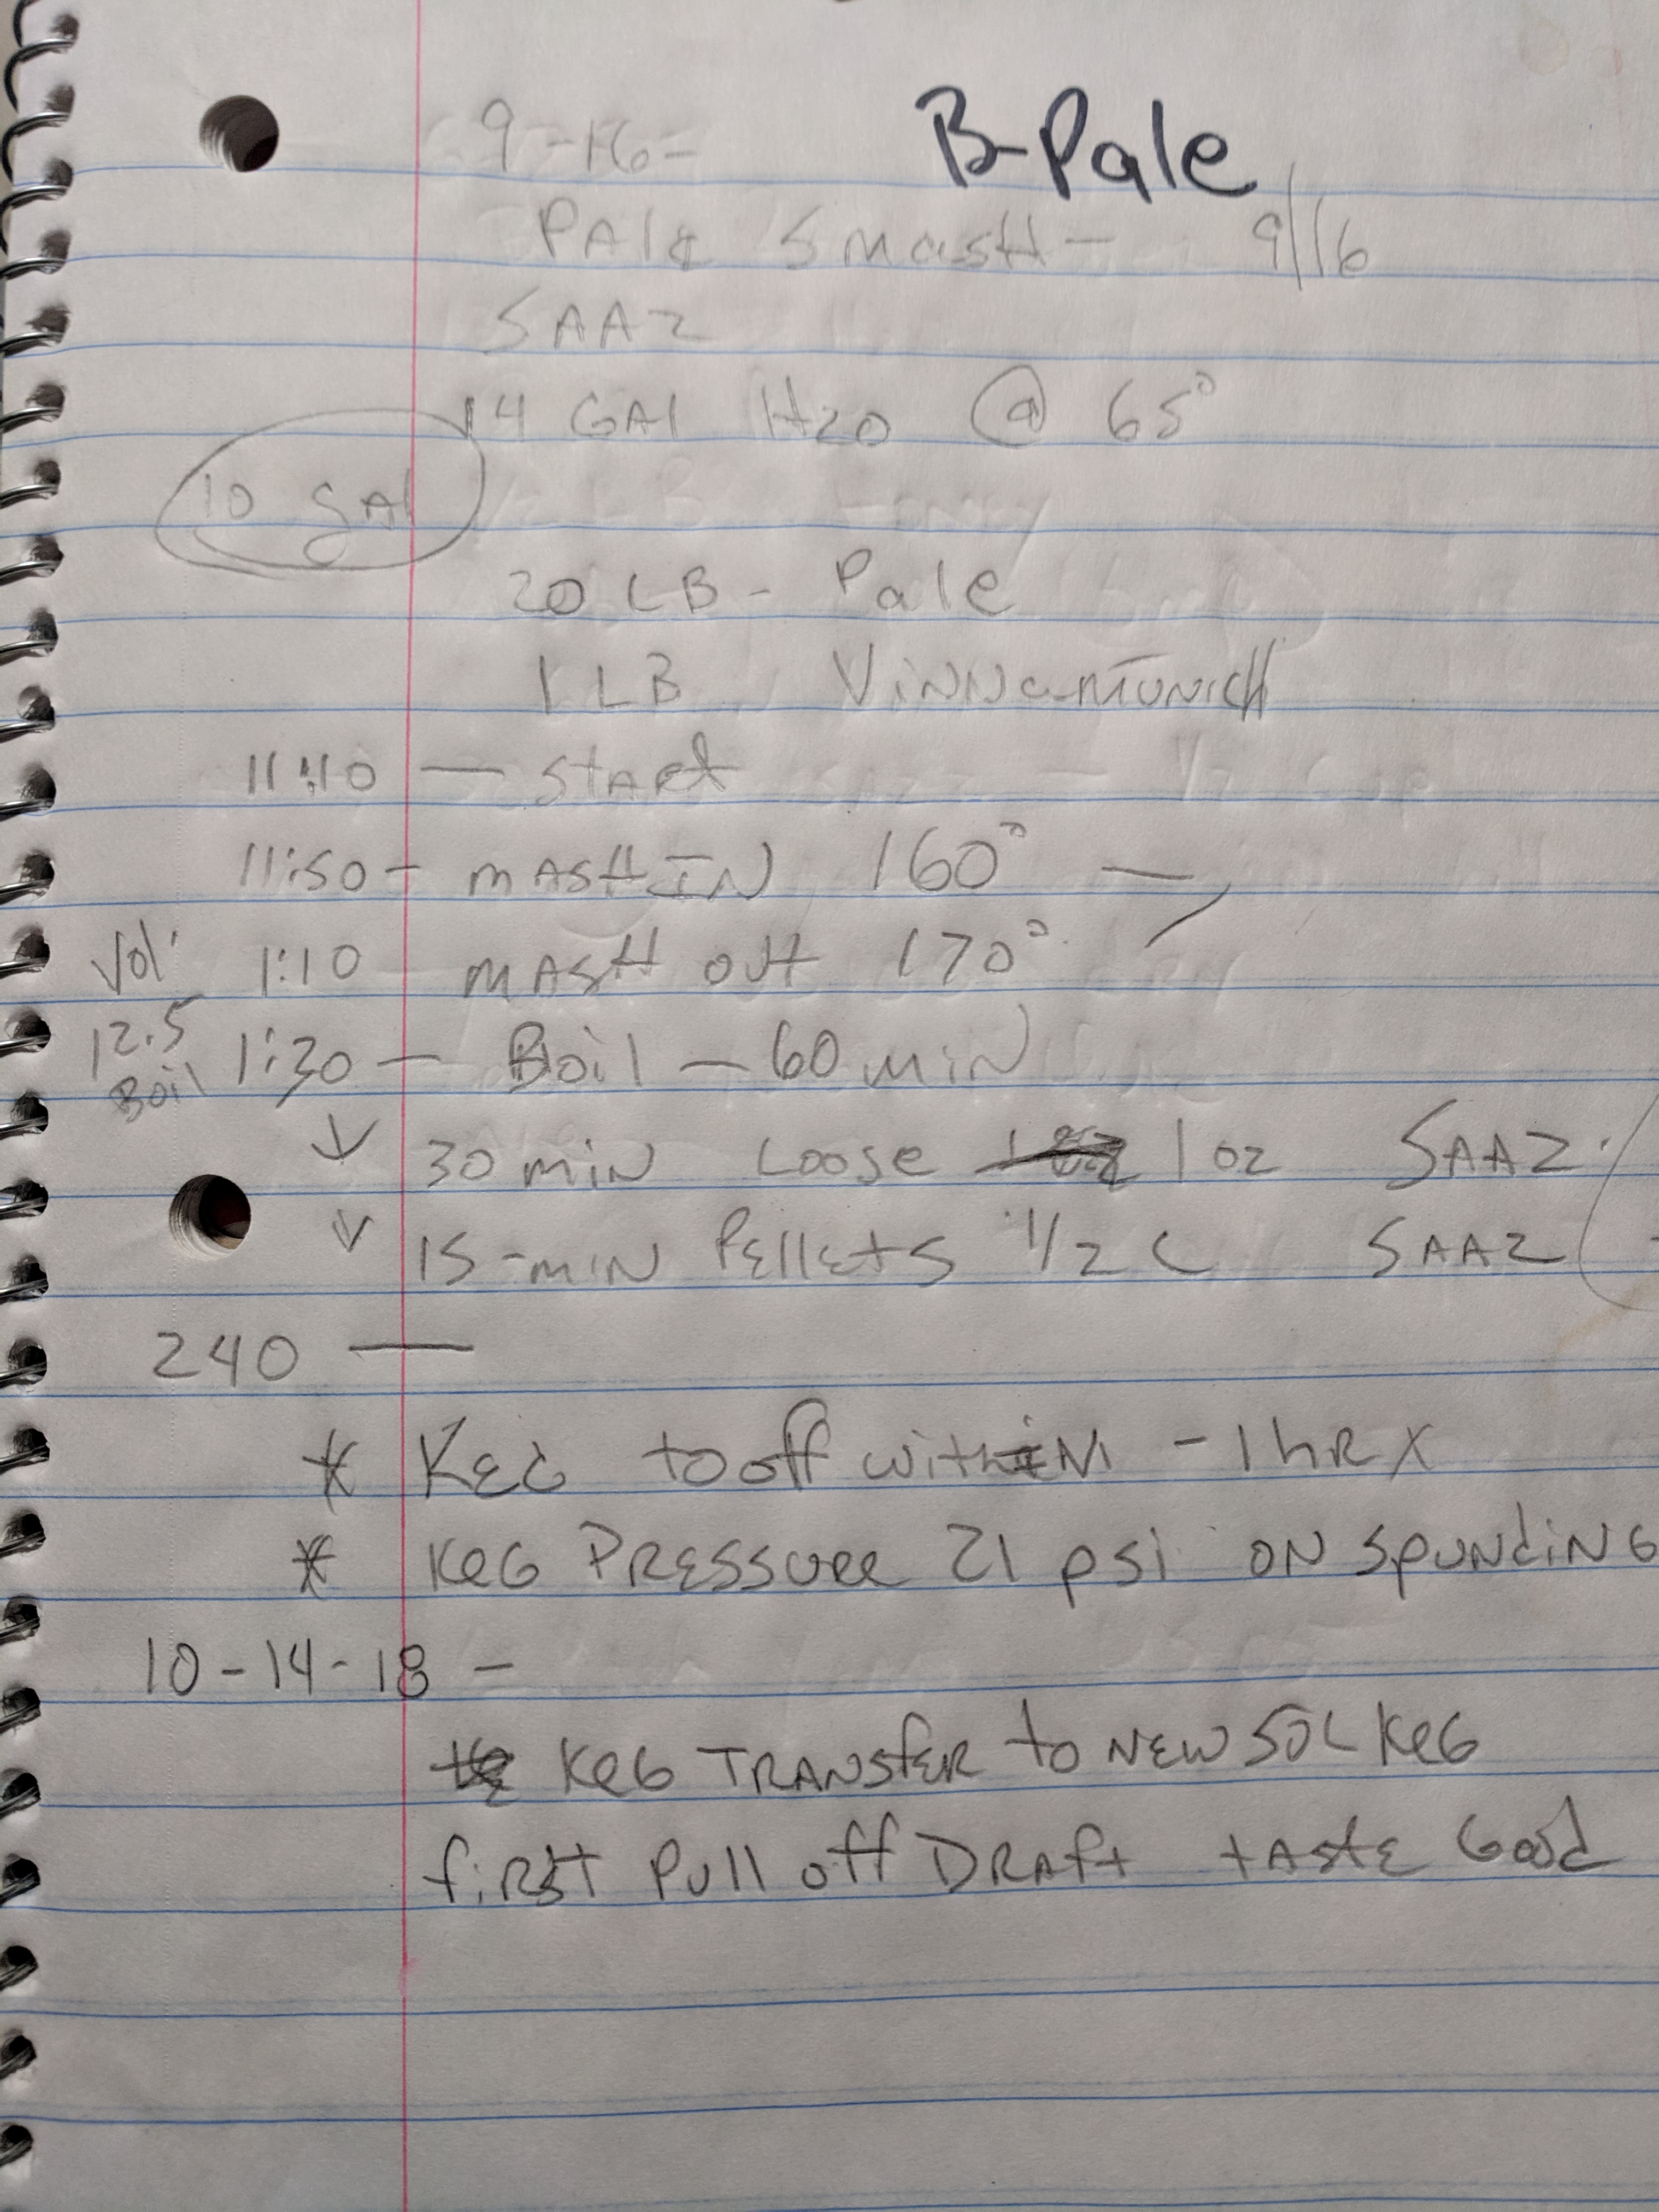 B-Pale
9-16-
PAlE SmasH - 9/16
SAAZ
14 GAl H2O @ 65°
10 gAl
20 LB - Pale
1 LB VinnaMUNicH
11:40 — StARt
11:50 - mASH IN 160° —
Vol 1:10 - mASH out 170°
12.5 Boil 1:30 - Boil — 60 miN
↓ 30 miN Loose 1 oz SAAZ
↓ 15-miN PEllEtS 1/2 C SAAZ
240 —
* KEG to off withiN - 1 hR X
* KeG PRESSURE 21 psi ON SpUNdiNG
10-14-18 -
KeG TRANSfER to NEW 50L KeG
fiRSt Pull off DRAft tAStE Good